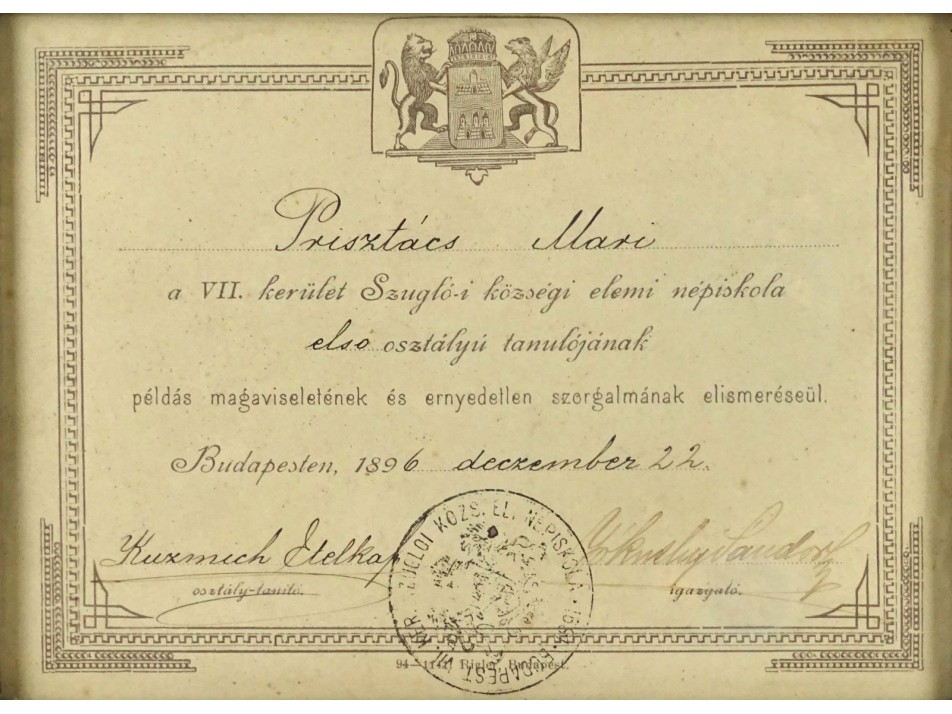 Prisztács Mari
a VII. kerület Szugló-i községi elemi népiskola
első osztályú tanulójának
példás magaviseletének és ernyedetlen szorgalmának elismeréseül.
Budapesten, 1896 deczember 22.
Kuzmich Etelka
Sándor
osztály-tanító.
igazgató.
VII. KER. SZUGLÓI KÖZS. EL. NÉPISKOLA · BUDAPEST
Rigler Budapest.